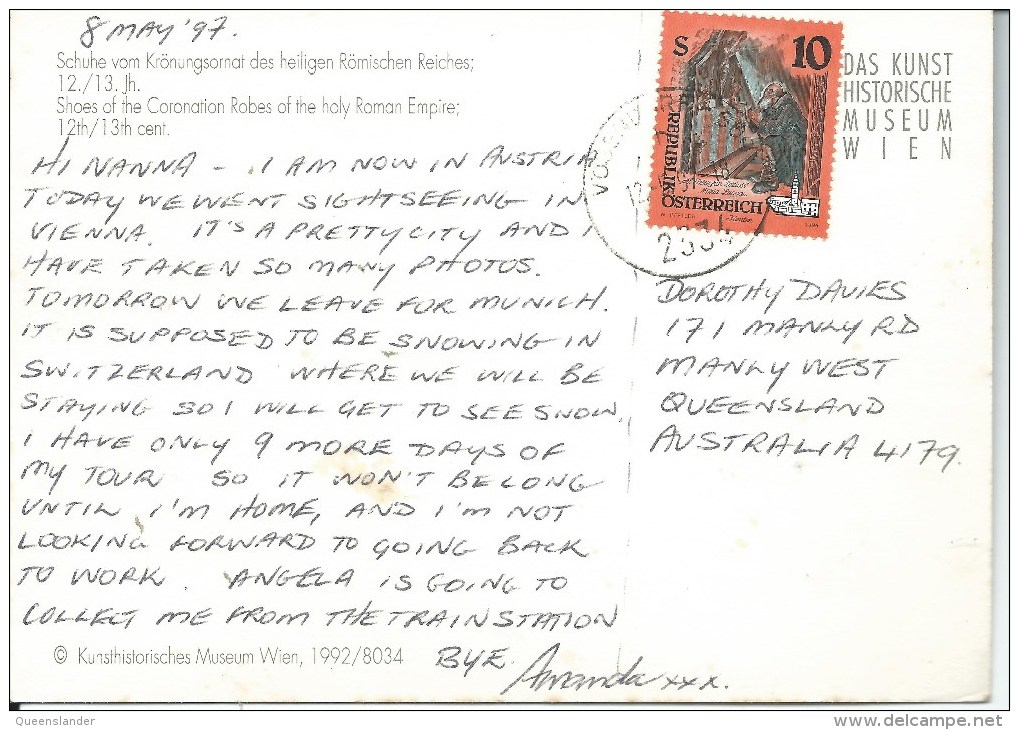 8 MAY '97.
Schuhe vom Krönungsornat des heiligen Römischen Reiches;
12./13. Jh.
Shoes of the Coronation Robes of the holy Roman Empire;
12th/13th cent.
HI NANNA - I AM NOW IN AUSTRIA
TODAY WE WENT SIGHTSEEING IN
VIENNA. IT'S A PRETTY CITY AND I
HAVE TAKEN SO MANY PHOTOS.
TOMORROW WE LEAVE FOR MUNICH.
IT IS SUPPOSED TO BE SNOWING IN
SWITZERLAND WHERE WE WILL BE
STAYING SO I WILL GET TO SEE SNOW.
I HAVE ONLY 9 MORE DAYS OF
MY TOUR SO IT WON'T BE LONG
UNTIL I'M HOME, AND I'M NOT
LOOKING FORWARD TO GOING BACK
TO WORK. ANGELA IS GOING TO
COLLECT ME FROM THE TRAIN STATION
BYE. Amanda xxx.
© Kunsthistorisches Museum Wien, 1992/8034
S 10
REPUBLIK
ÖSTERREICH
2334
DAS KUNST
HISTORISCHE
MUSEUM
WIEN
DOROTHY DAVIES
171 MANLY RD
MANLY WEST
QUEENSLAND
AUSTRALIA 4179.
Queenslander
delcampe.net